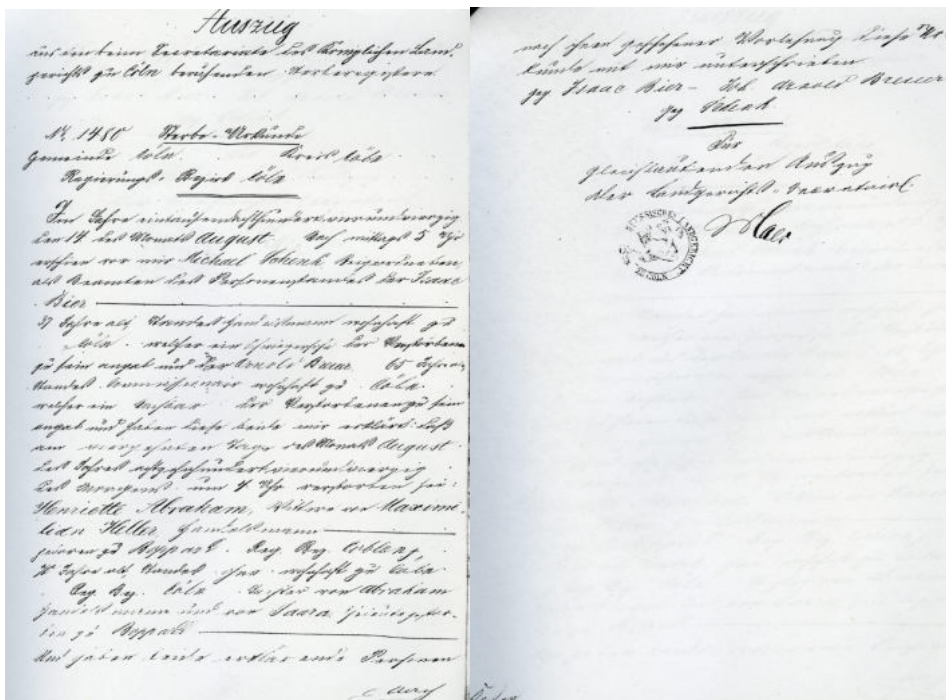 Auszug
aus den beim Secretariate des Königlichen Land-
gerichts zu Cöln beruhenden Sterberegistern
No. 1480 Sterbe-Urkunde
Gemeinde Cöln. Kreis Cöln.
Regierungs-Bezirk Cöln
Im Jahre eintausendachthundert vierundvierzig
den 14 des Monats August Nach mittags 5 Uhr
erschien vor mir Michael Schenk, Beigeordneten,
als Beamten des Personenstandes der Isaac
Bier
37 Jahre alt, Standes Handelsmann wohnhaft zu
Cöln welcher ein der Verstorbenen
zu sein angab und der 65 Jahre
Standes Commissionair wohnhaft zu Cöln
welcher ein Nachbar der Verstorbenen zu sein
angab und haben diese beide mir erklärt: daß
am vierzehnten Tage des Monats August
des Jahres achtzehnhundert vierundvierzig
des Morgens um Uhr verstorben sei:
Henriette Abraham, Wittwe von Maximi-
lian Heller, Handelsmann
geboren zu Boppard. Reg. Bez. Coblenz,
Jahre alt, Standes ohne wohnhaft zu Cöln
Reg. Bez. Cöln Tochter von Abraham
Handelsmann und von Saara
zu Boppard
Und haben beide erklärende Personen
nach
nach ihnen geschehener Vorlesung diese Ur-
kunde mit mir unterschrieben
gez Isaac Bier - Arnold Breuer
gez Schenk
Für
gleichlautenden Auszug
Der Landgerichts-Secretair
LANDGERICHT
CÖLN